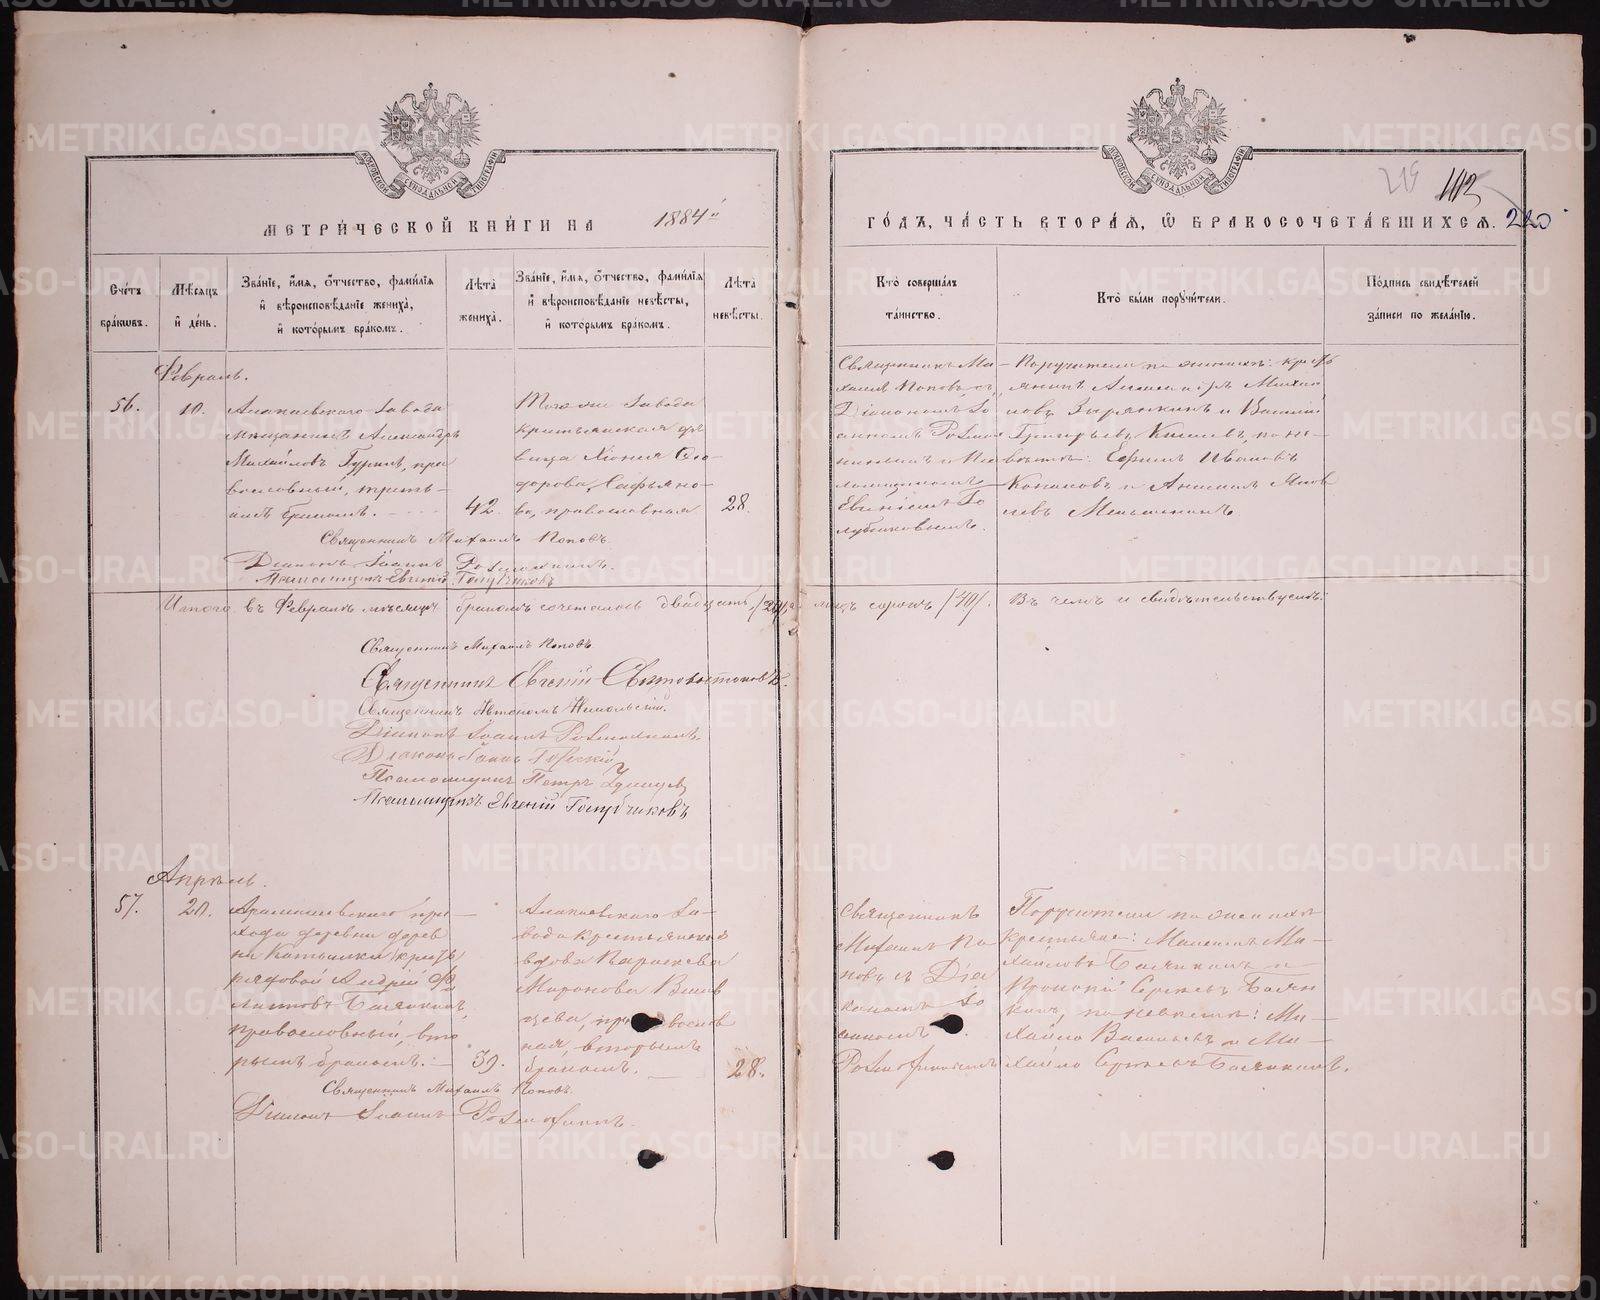 МЕТРИ́ЧЕСКОЙ КНИ́ГИ НА 1884й
ГО́ДЪ, ЧА́СТЬ ВТОРА́Я, Ѡ БРАКОСОЧЕТА́ВШИХСЯ. 220
Счётъ бра́кѡвъ.
Мѣ́сяцъ и де́нь.
Зва́нїе, и́мя, ѻ҆́тчество, фами́лїя
и҆ вѣроисповѣ́данїе жениха̀,
и҆ кото́рымъ бра́комъ.
Лѣ́та жениха̀.
Зва́нїе, и́мя, ѻ҆́тчество, фами́лїя
и҆ вѣроисповѣ́данїе невѣ́сты,
и҆ кото́рымъ бра́комъ.
Лѣ́та невѣ́сты.
Кто̀ соверша́лъ
та́инство.
Кто̀ бы́ли поручи́тели.
По́дпись свидѣ́телей
за́писи по жела́нїю.
Февраль.
56.
10.
Алапаевскаго завода
мѣщанинъ Александръ
Михайловъ Гуринъ, пра
вославный, треть-
имъ бракомъ.
42.
Того же завода
крестьянская дѣ
вица Хіонія Ѳео
дорова Сафьяно-
ва, православная
28.
Священникъ Ми
хаилъ Поповъ съ
Діакономъ Іо
анномъ
и Пса
ломщикомъ
Евгеніемъ Го
лубчиковымъ.
Поручители по женихѣ: кресть
янинъ Александръ Михай
ловъ Зырянкинъ и Василій
Григорьевъ Киселевъ, по не-
вѣстѣ: Ефимъ Ивановъ
Конаковъ и Анисимъ Яков
левъ Меньшенинъ
Священникъ Михаилъ Поповъ.
Діаконъ Іоаннъ
Псаломщикъ Евгеній Голубчиковъ
Итого въ Февралѣ мѣсяцѣ бракомъ сочеталось двадцать /20/, а лицъ сорокъ /40/. Въ чемъ и свидѣтельствуемъ:
Священникъ Михаилъ Поповъ
Священникъ Евгеній
Священникъ Автономъ Никольскій.
Діаконъ Іоаннъ
Діаконъ Іоаннъ
Псаломщикъ Петръ Удинцевъ
Псаломщикъ Евгеній Голубчиковъ
Апрѣль.
57.
20.
Арамашевскаго при-
хода деревни дерев
ни Катышки кресть
рядовой Андрей Фи
липповъ Балакинъ,
православный, вто
рымъ бракомъ.
39.
Алапаевскаго за-
вода крестьянская
вдова Параскева
Миронова
православ
ная, вторымъ
бракомъ.
28.
Священникъ
Михаилъ По
повъ съ Діа
кономъ Іо
анномъ
Поручители по женихѣ
крестьяне: Максимъ Ми-
хайловъ Балакинъ и
Сергѣевъ Балак
кинъ, по невѣстѣ: Ми-
хайло Васильевъ и Ми-
хайло Сергѣевъ Балакинъ.
Священникъ Михаилъ Поповъ.
Діаконъ Іоаннъ
METRIKI.GASO-URAL.RU